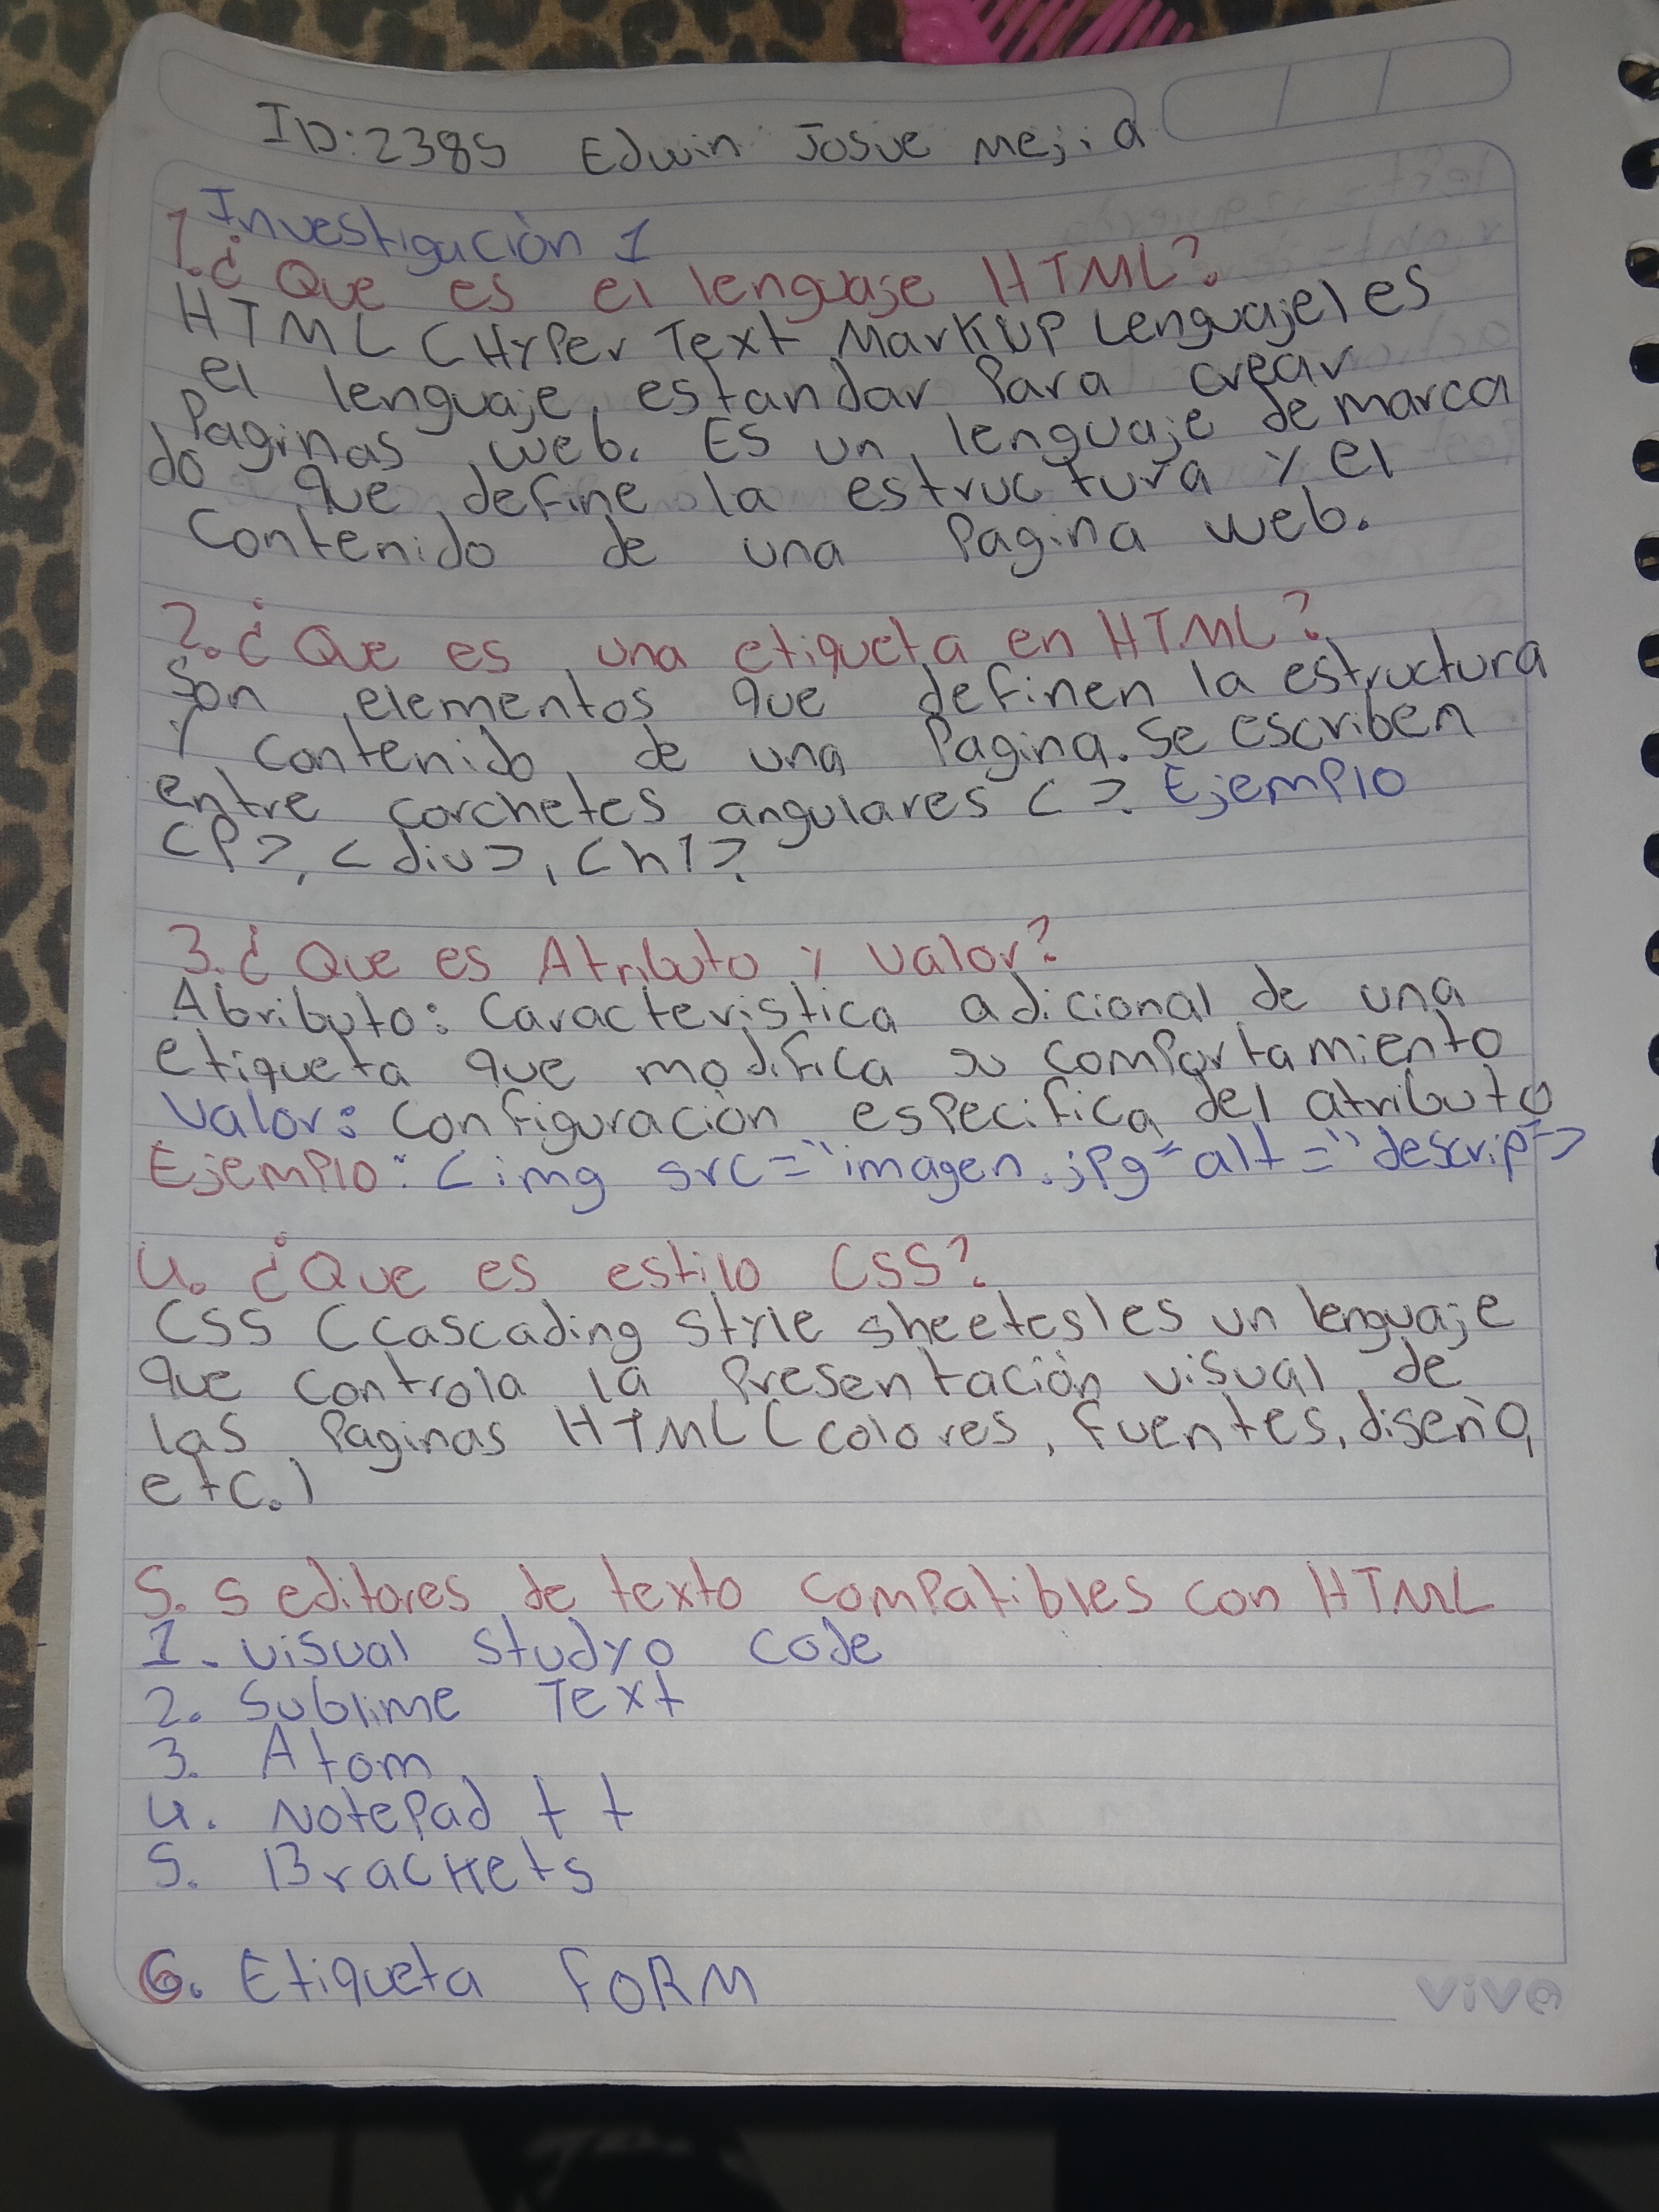 ID: 2385 Edwin Josue Mejia
Investigación 1
1. ¿Que es el lenguaje HTML?
HTML (Hyper Text Markup Lenguaje) es
el lenguaje estandar para crear
Paginas web. Es un lenguaje de marca
do que define la estructura y el
Contenido de una Pagina web.
2. ¿Que es una etiqueta en HTML?
Son elementos que definen la estructura
y contenido de una Pagina. Se escriben
entre corchetes angulares < >. Ejemplo
<p>, <div>, <h1>.
3. ¿Que es Atributo y valor?
Abributo: Caracteristica adicional de una
etiqueta que modifica su comportamiento
Valor: Configuración especifica del atributo
Ejemplo: <img src="imagen.jpg" alt="descrip">
4. ¿Que es estilo CSS?
CSS (Cascading Style sheetes) es un lenguaje
que controla la Presentación visual de
las Paginas HTML (colores, fuentes, diseño,
etc.)
5. 5 editores de texto compatibles con HTML
1. Visual Studyo Code
2. Sublime Text
3. Atom
4. Notepad ++
5. Brackets
6. Etiqueta FORM
Viva